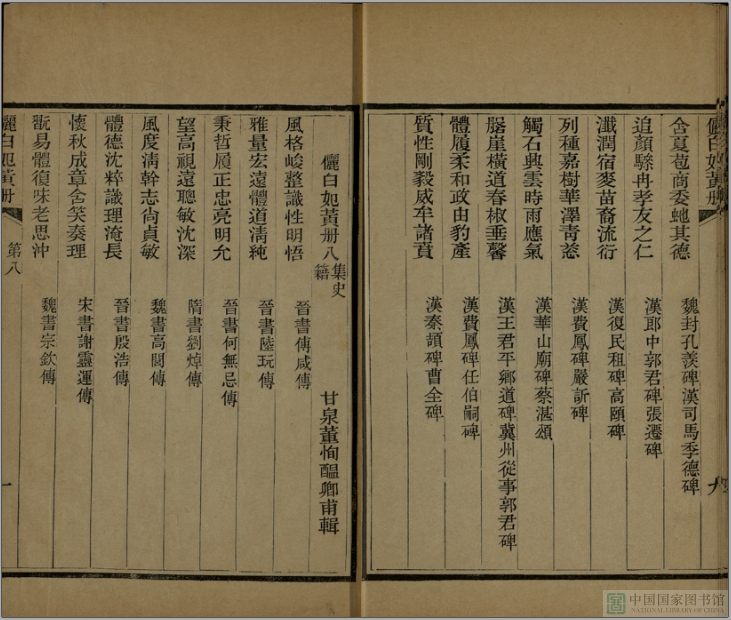 儷白妃黃册
含夏苞商委虵其德 魏封孔羨碑漢司馬季德碑
追顏騄冉孝友之仁 漢郎中郭君碑張遷碑
瀸潤宿麥苗裔流衍 漢復民租碑高頤碑
列種嘉樹華澤青葱 漢費鳳碑嚴訢碑
觸石興雲時雨應氣 漢華山廟碑蔡湛頌
崖橫道春椒垂馨 漢王君平鄉道碑冀州從事郭君碑
體履柔和政由豹產 漢費鳳碑任伯嗣碑
質性剛毅威牟諸賁 漢秦頡碑曹全碑
儷白妃黃册八 集史籍 甘泉董恂醞卿甫輯
風格峻整識性明悟 晉書傅咸傳
雅量宏遠體道清純 晉書陸玩傳
秉哲履正忠亮明允 晉書何無忌傳
望高視遠聰敏沈深 隋書劉焯傳
風度淸幹志尚貞敏 魏書高閭傳
體德沈粹識理淹長 晉書殷浩傳
懷秋成章含笑奏理 宋書謝靈運傳
翫易體復味老思沖 魏書宗欽傳
儷白妃黃册 第八 一
中国国家图书馆
NATIONAL LIBRARY OF CHINA